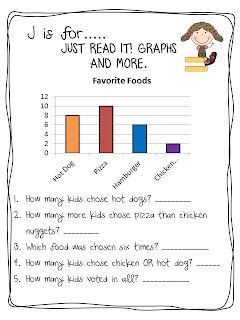 J is for.....
JUST READ IT! GRAPHS
AND MORE.
Favorite Foods
12
10
8
6
4
2
0
Hot Dog
Pizza
Hamburger
Chicken...
1. How many kids chose hot dogs? ________
2. How many more kids chose pizza than chicken
nuggets? ________
3. Which food was chosen six times? ___________
4. How many kids chose chicken OR hot dog? ______
5. How many kids voted in all? ___________